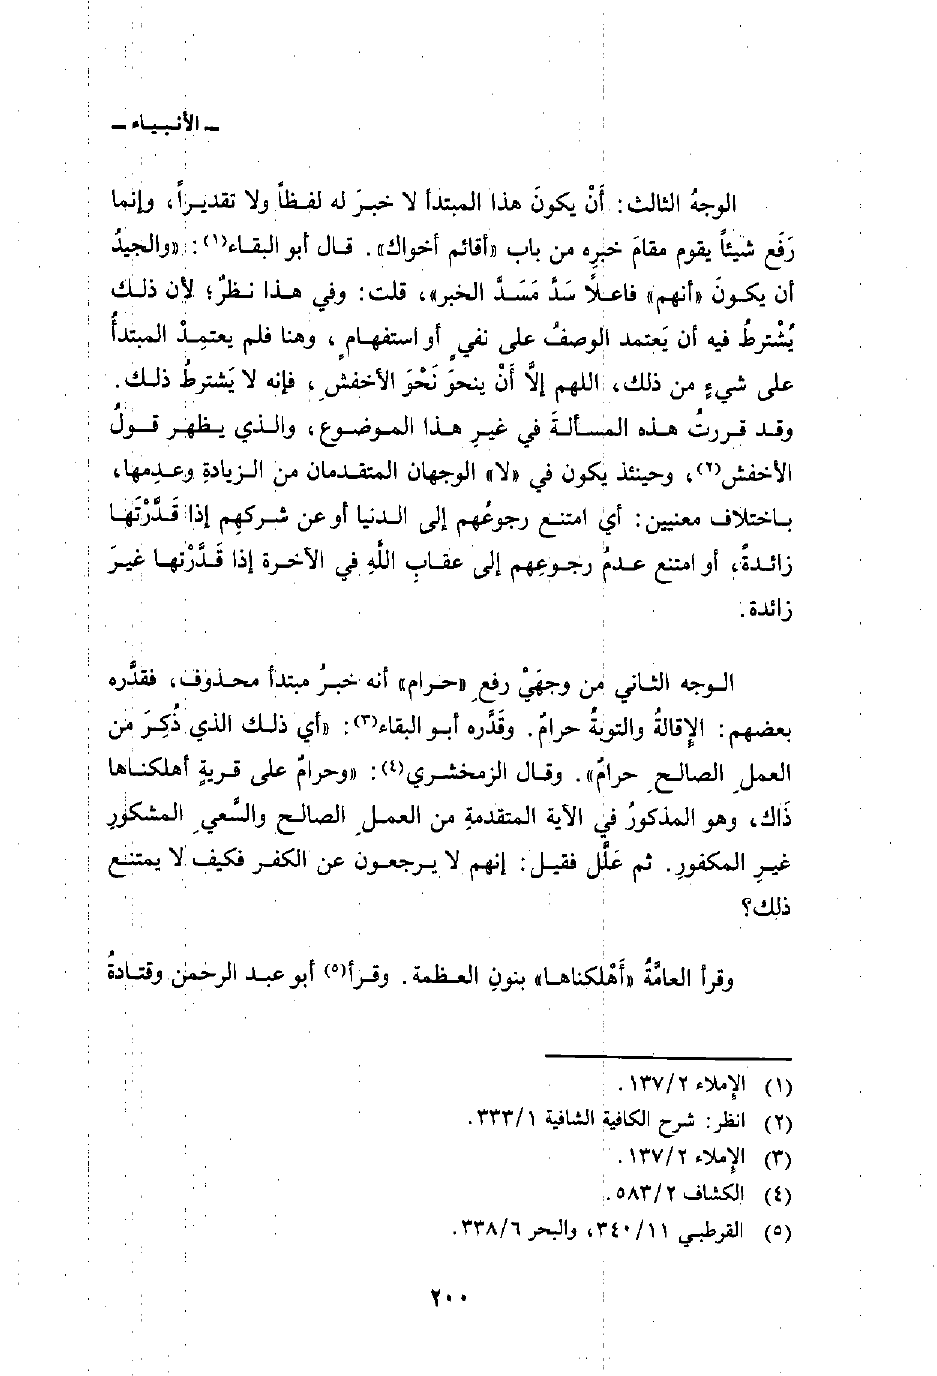 ـ الأنبياء ـ
الوجهُ الثالث: أَنْ يكونَ هذا المبتدأ لا خبرَ له لفظاً ولا تقديراً، وإنما
رَفَع شيئاً يقوم مقامَ خبرِه من باب «أقائم أخواك». قال أبو البقاء(١): «والجيدُ
أن يكونَ «أنهم» فاعلاً سَدَّ مَسَدَّ الخبر»، قلت: وفي هذا نظرٌ؛ لأن ذلك
يُشْترطُ فيه أن يَعتمد الوصفُ على نفيٍ أو استفهامٍ، وهنا فلم يعتمِدْ المبتدأُ
على شيءٍ من ذلك، اللهم إلَّا أَنْ ينحوَ نَحْوَ الأخفشِ، فإنه لا يَشترطُ ذلك.
وقد قررتُ هذه المسألةَ في غيرِ هذا الموضوع، والذي يظهر قولُ
الأخفش(٢)، وحينئذ يكون في «لا» الوجهان المتقدمان من الزيادةِ وعدمِها،
باختلاف معنيين: أي امتنع رجوعُهم إلى الدنيا أو عن شركهم إذا قَدَّرْتَها
زائدةً، أو امتنع عدمُ رجوعِهم إلى عقابِ اللَّهِ في الآخرة إذا قَدَّرْتها غيرَ
زائدة.
الوجه الثاني من وجهَيْ رفعِ «حرام» أنه خبرُ مبتدأ محذوف، فقدَّره
بعضهم: الإِقالةُ والتوبةُ حرامٌ. وقَدَّره أبو البقاء(٣): «أي ذلك الذي ذُكِرَ من
العملِ الصالحِ حرامٌ». وقال الزمخشري(٤): «وحرامٌ على قريةٍ أهلكناها
ذَاك، وهو المذكورُ في الآية المتقدمةِ من العملِ الصالح والسَّعيِ المشكورِ
غيرِ المكفورِ. ثم عَلَّل فقيل: إنهم لا يرجعون عن الكفر فكيف لا يمتنع
ذلك؟
وقرأ العامَّةُ «أَهْلكناها» بنونِ العظمة. وقرأ(٥) أبو عبد الرحمن وقتادةُ
(١) الإملاء ١٣٧/٢.
(٢) انظر: شرح الكافية الشافية ٣٣٣/١.
(٣) الإملاء ١٣٧/٢.
(٤) الكشاف ٥٨٣/٢.
(٥) القرطبي ٣٤٠/١١، والبحر ٣٣٨/٦.
٢٠٠